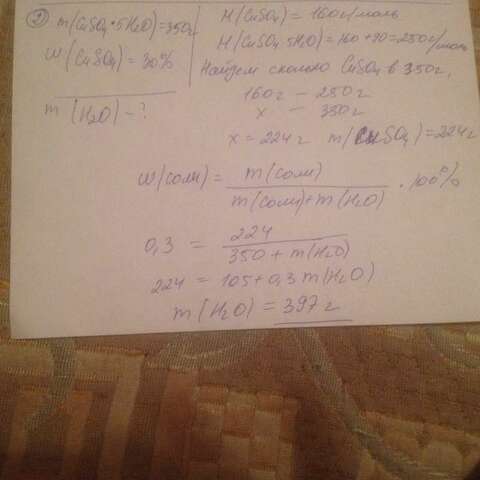 2) m(CuSO4·5H2O)=350г
W(CuSO4)=30%
m(H2O)-?
M(CuSO4)=160г/моль
M(CuSO4·5H2O)=160+90=250г/моль
Найдем сколько CuSO4 в 350г,
160г - 250г
x - 350г
x = 224г m(CuSO4)=224г
W(соли) = m(соли) / m(соли)+m(H2O) · 100%
0,3 = 224 / 350 + m(H2O)
224 = 105+0,3m(H2O)
m(H2O) = 397г